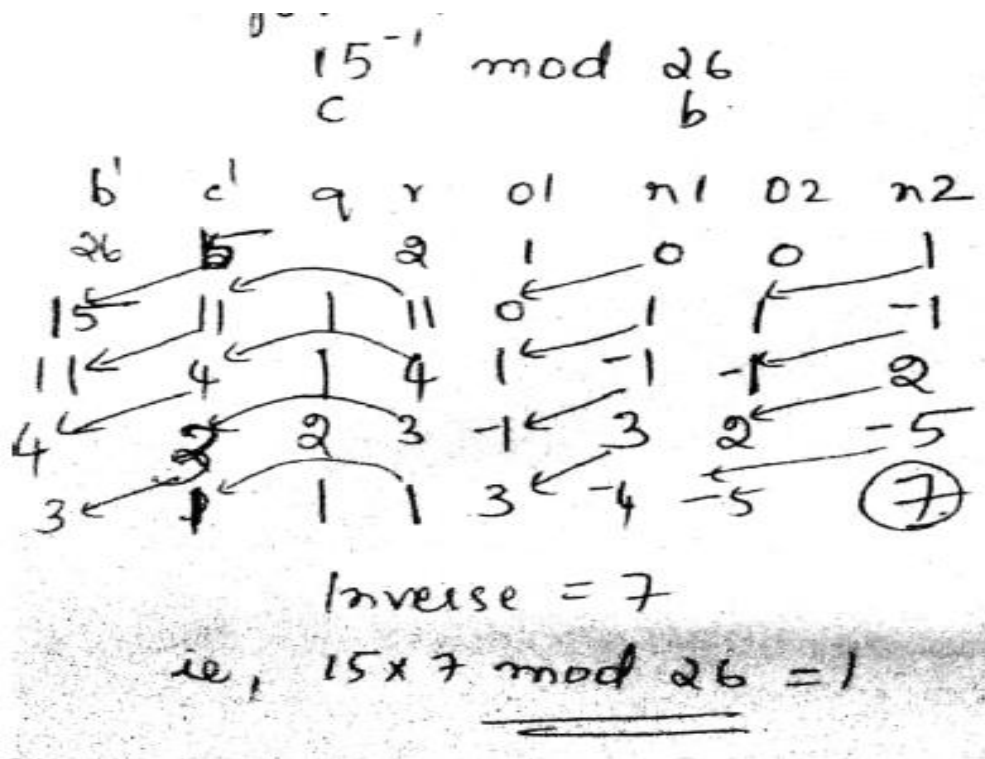 15⁻¹ mod 26
c b
b' c' q r 01 n1 02 n2
26 15 2 1 0 0 1
15 11 1 11 0 1 1 -1
11 4 1 4 1 -1 -1 2
4 2 2 3 -1 3 2 -5
3 1 1 1 3 -4 -5 7
Inverse = 7
ie, 15 x 7 mod 26 = 1